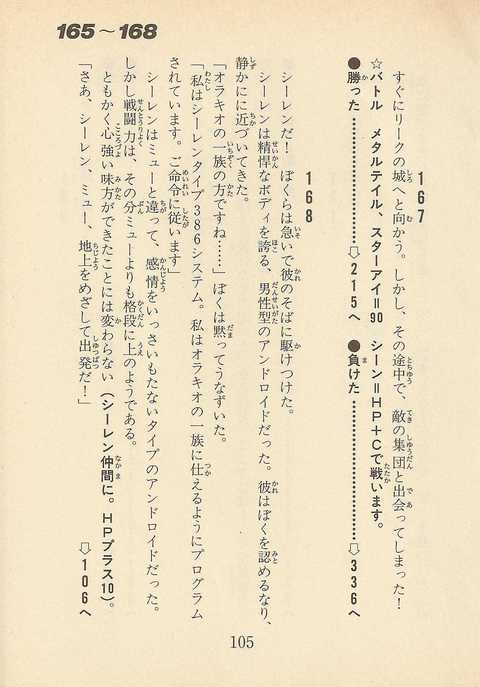 165～168
167
すぐにリークの城へと向かう。しかし、その途中で、敵の集団と出会ってしまった！
☆バトル　メタルテイル、スターアイ＝90　シーン＝HP＋Cで戦います。
●勝った…………………⇨215へ　●負けた…………………⇨336へ
168
シーレンだ！　ぼくらは急いで彼のそばに駆けつけた。
シーレンは精悍なボディを誇る、男性型のアンドロイドだった。彼はぼくを認めるなり、
静かにに近づいてきた。
「オラキオの一族の方ですね……」ぼくは黙ってうなずいた。
「私はシーレンタイプ386システム。私はオラキオの一族に仕えるようにプログラム
されています。ご命令に従います」
シーレンはミューと違って、感情をいっさいもたないタイプのアンドロイドだった。
しかし戦闘力は、その分ミューよりも格段に上のようである。
ともかく心強い味方ができたことには変わらない（シーレン仲間に。HPプラス10）。
「さあ、シーレン、ミュー、地上をめざして出発だ！」　⇨106へ
105